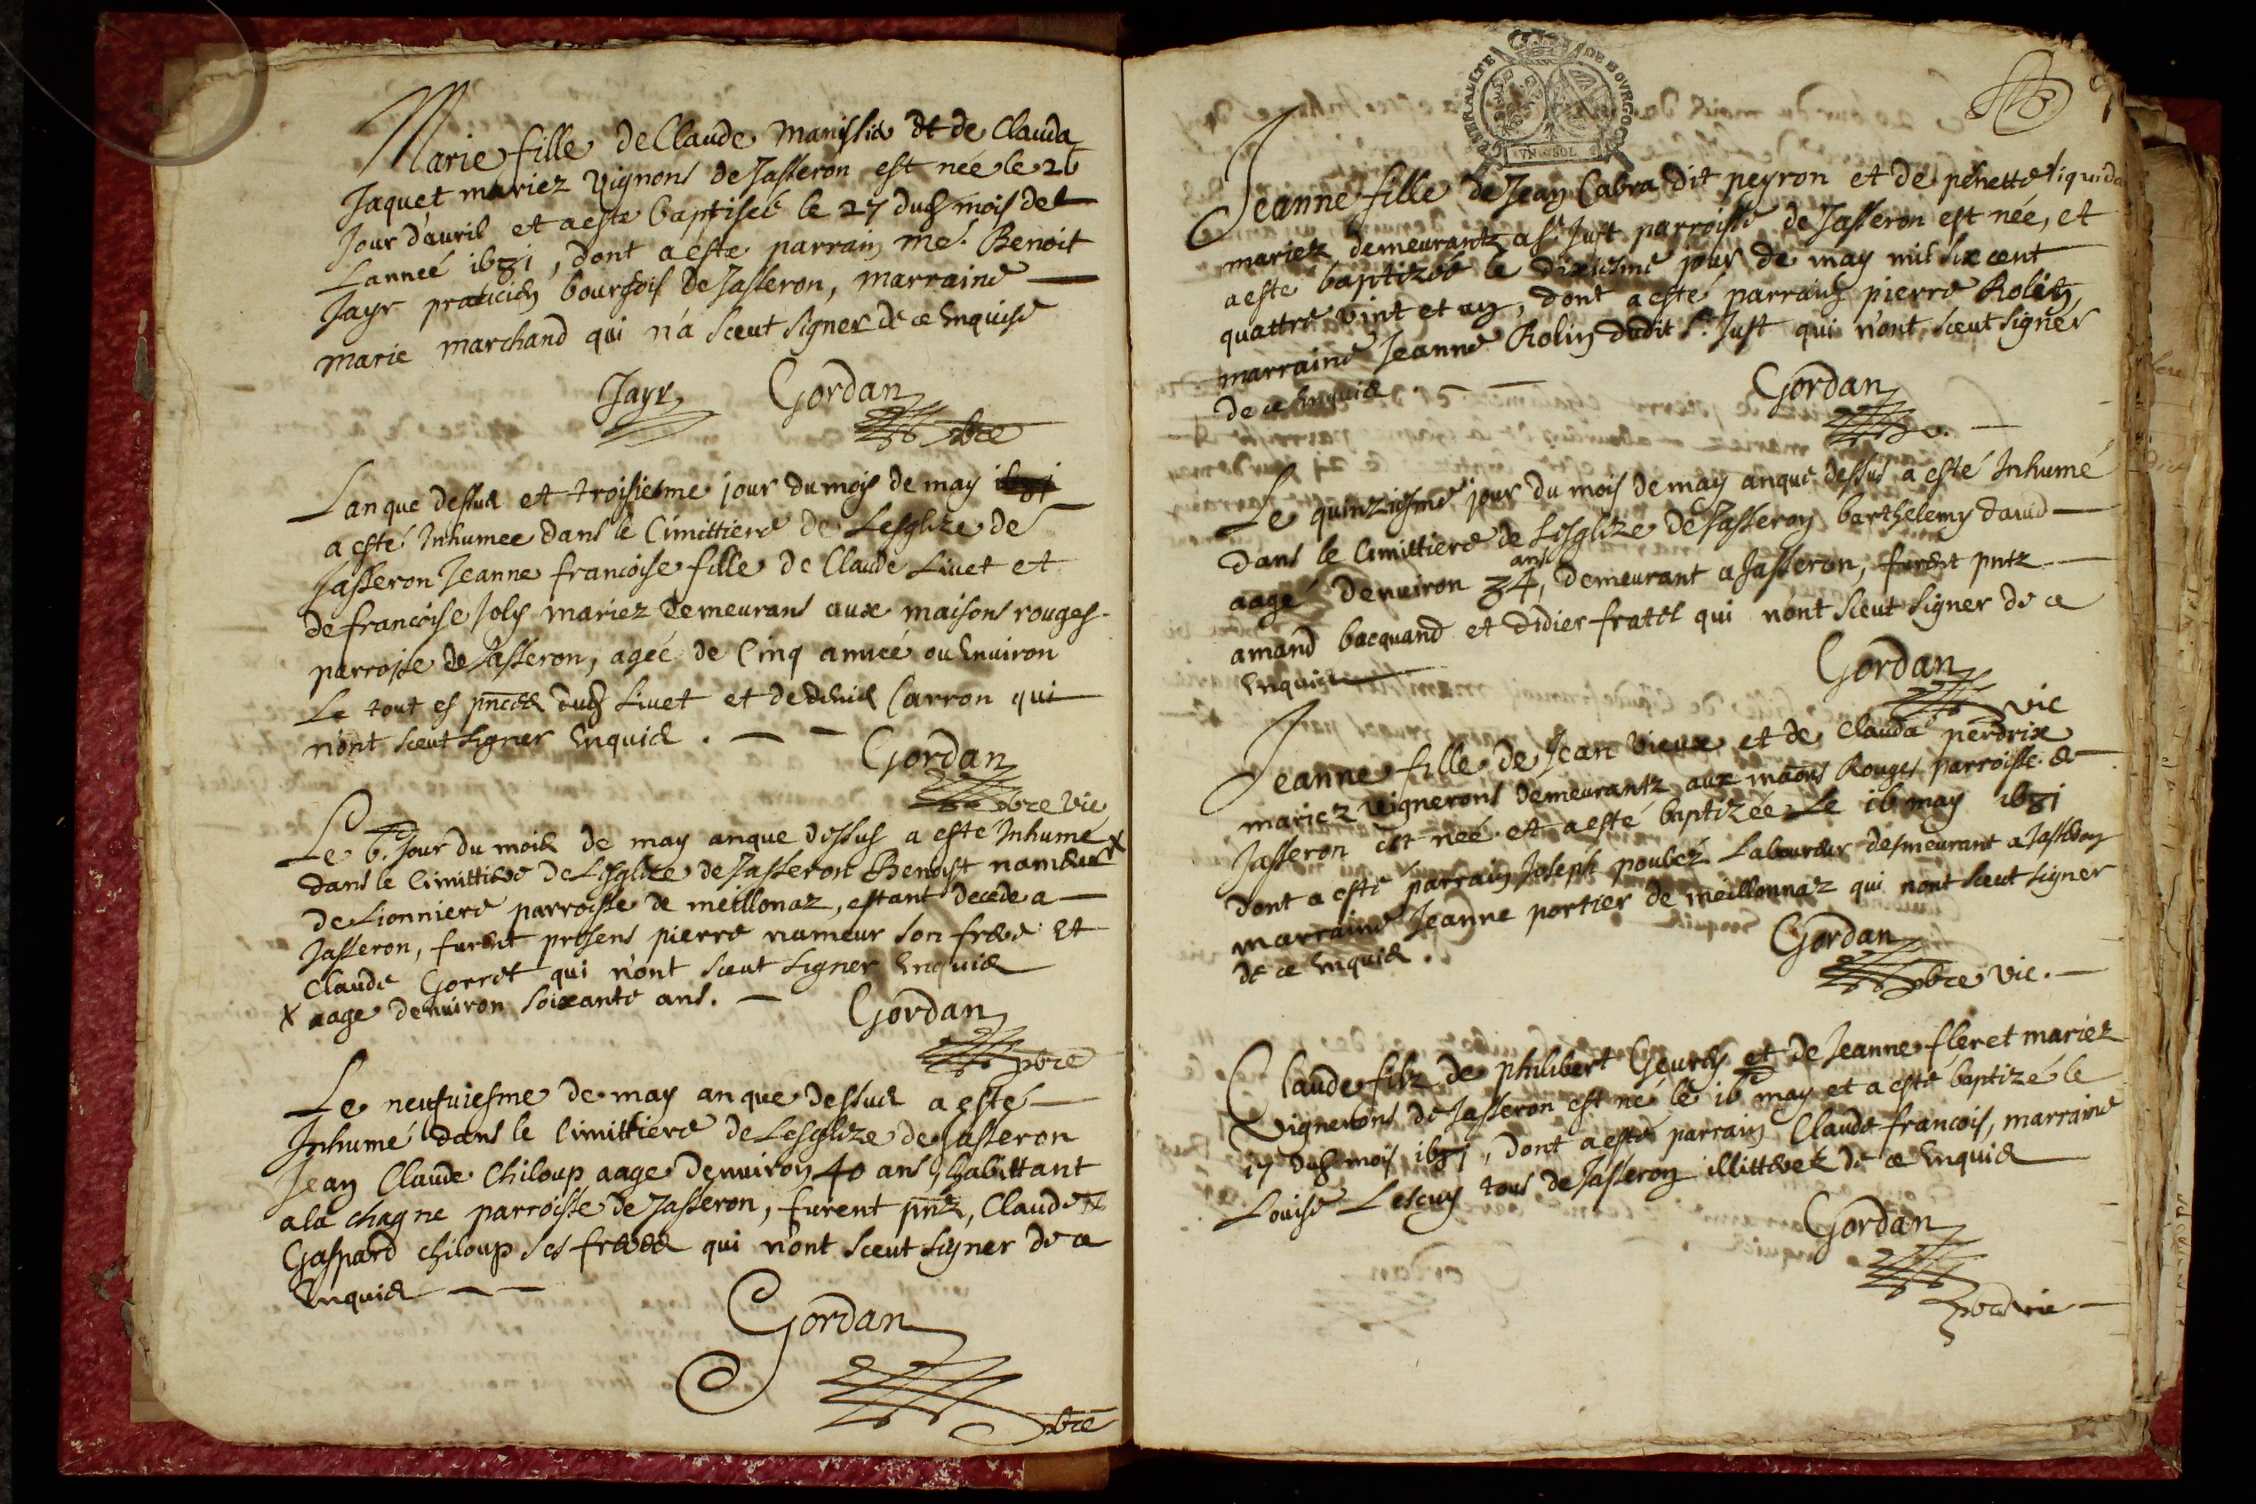 Marie fille de Claude Manissier et de Clauda
Jaquet mariez vignons de Jasseron est née le 26
Jour d'avril et a este baptisée le 27 dud mois de
Lanneé 1681, dont a este parrain me. Benoit
Jayr praticien bourgois de Jasseron, marraine
marie marchand qui n'a sceut signer de ce Enquise
Jayr Gordan
pbre
Lan que dessus et troisiesme jour du mois de may
a esté Inhumee dans le Cimittiere de Lesglize de
Jasseron Jeanne francoise fille de Claude Livet et
de francoise Joly mariez demeurans aux maisons rouges
parroisse de Jasseron, agée de Cinq anneé ou Environ
Le tout es pnces dud Livet et de denis Carron qui
n'ont sceut signer Enquis.
Gordan
pbre vic
Le 6e Jour du mois de may anque dessus a esté Inhumé
dans le Cimittiere de Lesglize de Jasseron Benoist nameur x
de Lionniere parroisse de meillonaz, estant decede a
Jasseron, furent presens pierre nameur son frere Et
Claude Gorret qui n'ont sceut signer Enquis
x aage denviron soixante ans.
Gordan
pbre
Le neufviesme de may an que dessus a esté
Inhumé dans le Cimittiere de Lesglize de Jasseron
Jean Claude Chiloup aage denviron 40 ans, habittant
a la chagne parroisse de Jasseron, furent pntz, Claude et
Gaspard chiloup ses freres qui n'ont sceut signer de ce
Enquis
Gordan
pbre
GENERALITE DE BOVRGOGNE
VN SOL
Jeanne fille de Jean Cabra dit peyron et de penette
mariez demeurantz a St. Just parroisse de Jasseron est née, et
a esté baptizée le dixiesme jour de may mil six cent
quattre vint et un, dont a esté parrain pierre Rolin,
marraine Jeanne Rolin dudit St. Just qui n'ont sceut signer
de ce Enquis
Gordan
Le quinziesme jour du mois de may anque dessus a esté Inhumé
dans le Cimittiere de Lesglize de Jasseron barthelemy david
ans
aagé denviron 34, demeurant a Jasseron, furent pntz
amand bacquand et didier fratel qui n'ont sceut signer de ce
Enquis
Gordan
vic
Jeanne fille de Jean Vieux et de Clauda perdrix
mariez vignerons demeurantz aux maons Rouges parroisse de
Jasseron est neé et a esté baptizée Le 16 may 1681
dont a esté parrain Joseph poubez Laboureur desmeurant a Jasseron
marraine Jeanne portier de meillonnaz qui nont sceut signer
de ce Enquis.
Gordan
pbre vic.
Claude filz de philibert et de Jeanne fleret mariez
vignerons de Jasseron est né le 16 may et a esté baptizé le
17 dud mois 1681, dont a esté parrain Claude francois, marraine
Louise Lescuy tous de Jasseron illitterez de ce Enquis
Gordan
pbre vic